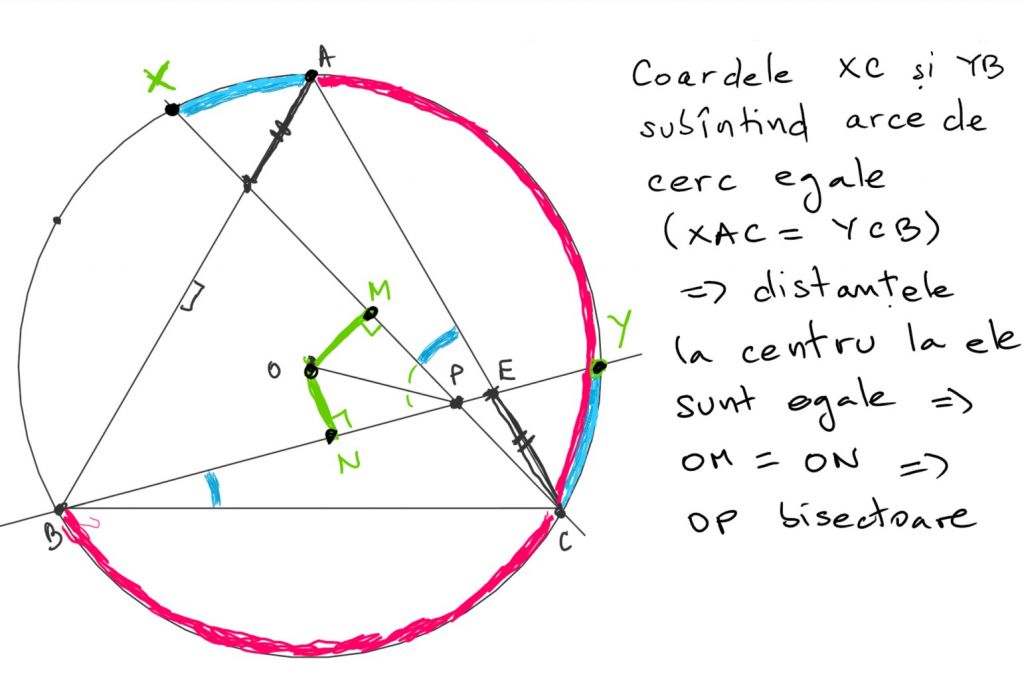 Coardele XC și YB
subîntind arce de
cerc egale
(XAC = YCB)
=> distanțele
la centru la ele
sunt egale =>
OM = ON =>
OP bisectoare
A
X
M
Y
O
P
E
N
B
C